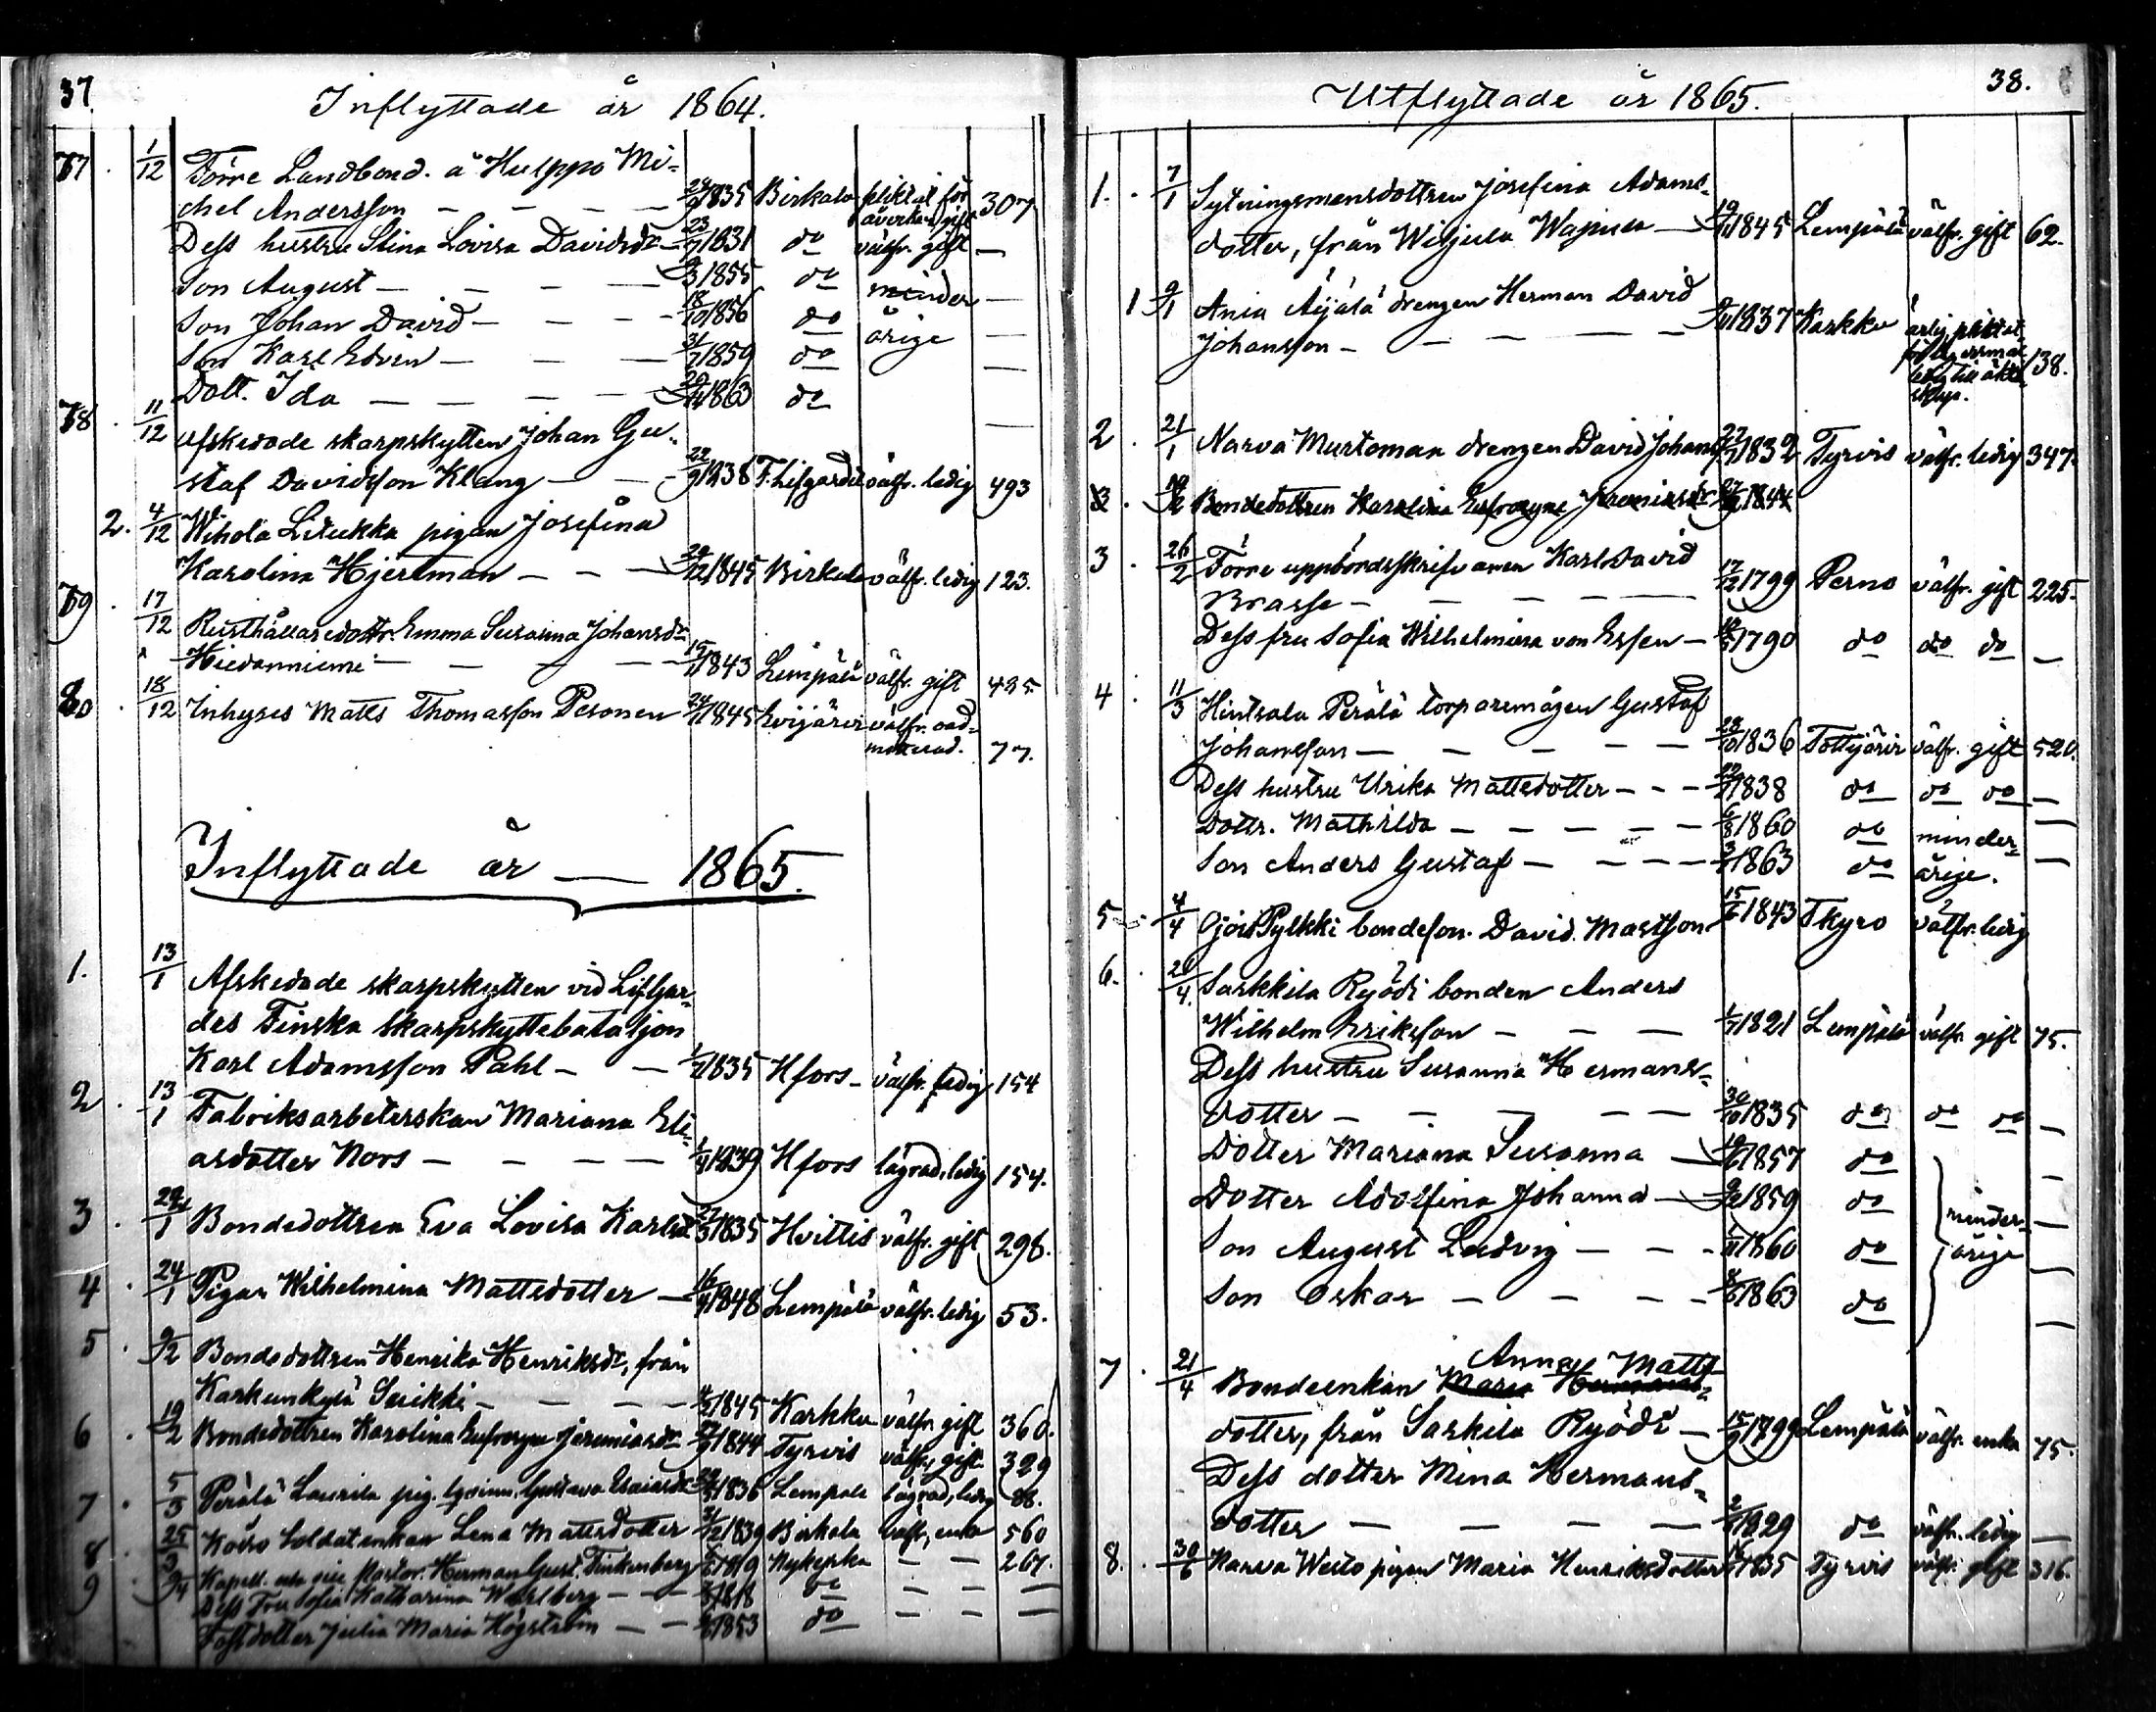 37.
Inflyttade år 1864.
77. 1/12 Förre Landbond. å Hulppo Mi-
chel Andersson — — — 1835 Birkala pliktat för 307
Dess hustru Stina Lovisa Davidsdr 23/7 1831 do välfr. gift —
Son August — — — 1855 do minder —
Son Johan David — — — 18/10 1856 do årige —
Son Karl Edvin — — — 31/7 1859 do —
Dott. Ida — — — 1863 do —
78. 11/12 Afskedade skarpskytten Johan Gu-
staf Davidsson Klang — — 22/9 1838 F. Lifgardet välfr. ledig 493
2. 4/12 Wihola Litukka pigan Josefina
Karolina Hjertman — — — 1845 Birkala välfr. ledig 123.
79. 17/12 Rusthållaredottr. Emma Susanna Johansdr
Hiedanniemi — — — 1843 Lempälä välfr. gift 425.
80. 18/12 Inhyses Matts Thomasson Pesonen 1845 Evijärvi välfr. oad-
mitterad. 77.
Inflyttade år — 1865.
1. 13/1 Afskedade skarpskytten vid Lifgar-
des Finska skarpskyttebataljon
Karl Adamsson Pahl — — 1835 Hfors — välfr. ledig 154
2. 13/1 Fabriksarbeterskan Mariana Eli-
asdotter Nors — — — 1839 Hfors lägrad, ledig 154.
3. 24/1 Bondedottren Eva Lovisa Karlsdr 1835 Hvittis välfr. gift 298.
4. 24/1 Pigan Wilhelmina Mattsdotter — 1848 Lempälä välfr. ledig 53.
5. 9/2 Bondedottren Henrika Henriksdr, från
Karkunkylä Seikki — — — 1845 Karkku välfr. gift 360.
6. 19/2 Bondedottren Karolina Eufrosyne Jeremiasdr 1844 Tyrvis välfr. gift 329
7. 5/3 Perälä Laurila pig. Gustava Esaiasdr 1836 Lempälä lägrad, ledig 88.
8. 25/3 Soldatenkan Lena Mattsdotter 31/12 1839 Birkala välfr. enka 560
9. 9/4 Kapell. Pastor. Herman Gust. Finkenberg 1819 Nykyrka — — 267.
Dess Fru Sofia Katharina Wahlberg — — 1818 do — — —
Fostdotter Julia Maria Högström — — 1853 do — — —
38.
Utflyttade år 1865.
1. 7/1 Sytningsmansdottren Josefina Adams-
dotter, från Wiljula Wajusa — 1845 Lempälä välfr. gift 62.
1 9/1 Ania Äijälä drengen Herman David
Johansson — — — 1837 Karkku 138.
2. 21/1 Narva Murtoman drengen David Johanss. 1832 Tyrvis välfr. ledig 347.
3. 19/2 Bondedottren Karolina Eufrosyne Jeremiasdr 1844
3. 26/2 Förre uppbördsskrifvaren Karl David
Brasse — — — 17/12 1799 Perno välfr. gift 225.
Dess fru Sofia Wilhelmina von Essen — 1790 do do do —
4. 11/3 Hintsala Perälä torparemågen Gustaf
Johansson — — — 1836 Tottijärvi välfr. gift 520.
Dess hustru Ulrika Mattsdotter — — — 1838 do do do —
Dottr. Mathilda — — — 1860 do minder- —
Son Anders Gustaf — — — 1863 do årige. —
5. 4/4 Pylkki bondeson David Mattsson 15/6 1843 Tkyro välfr. ledig
6. 20/4. Sarkkila Ryödi bonden Anders
Wilhelm Eriksson — — — 1821 Lempälä välfr. gift 75.
Dess hustru Susanna Hermans-
dotter — — — 30/10 1835 do do do —
Dotter Mariana Susanna — 1857 do —
Dotter Adolfina Johanna — 1859 do minder- —
Son August Ludvig — — — 1860 do årige —
Son Oskar — — — 1863 do —
Anna Matts
7. 21/4 Bondeenkan Maria Hermans-
dotter, från Sarkila Ryödi — 1799 Lempälä välfr. enka 75.
Dess dotter Mina Hermans-
dotter — — — 1829 do välfr. ledig —
8. 30/6 Westo pigan Maria Henriksdotter 1835 Tyrvis välfr. gift 316.